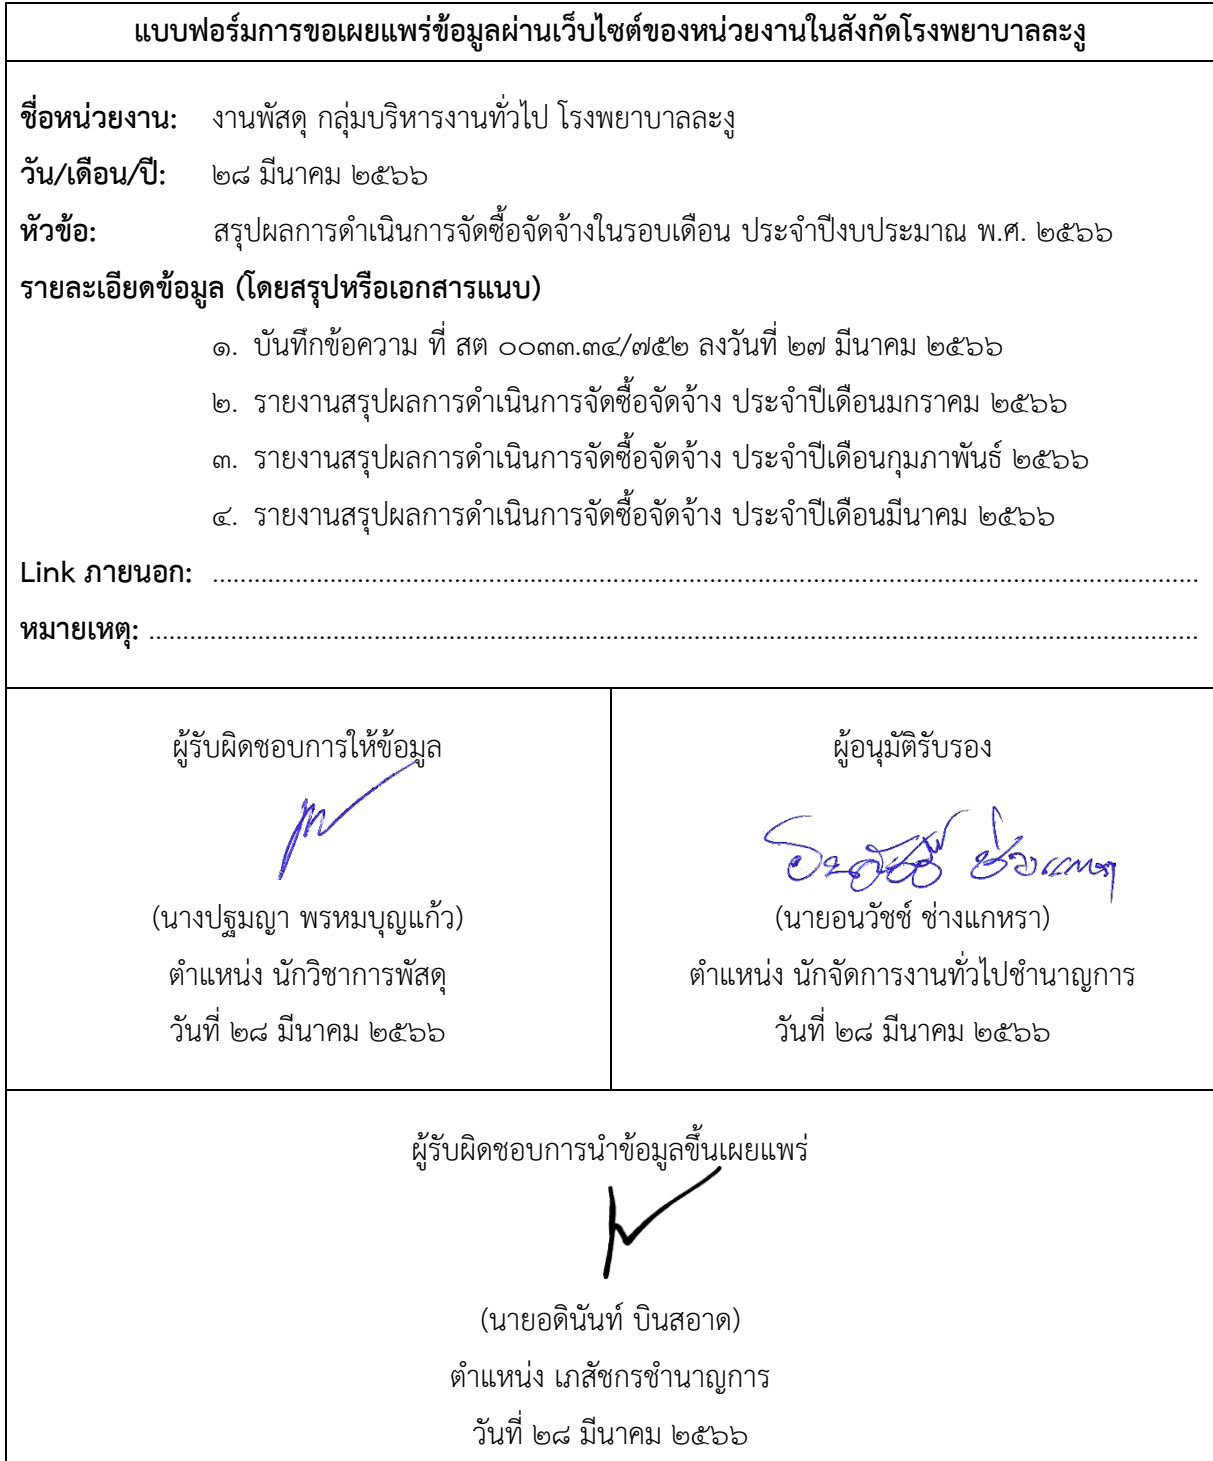 แบบฟอร์มการขอเผยแพร่ข้อมูลผ่านเว็บไซต์ของหน่วยงานในสังกัดโรงพยาบาลละงู
ชื่อหน่วยงาน: งานพัสดุ กลุ่มบริหารงานทั่วไป โรงพยาบาลละงู
วัน/เดือน/ปี: ๒๘ มีนาคม ๒๕๖๖
หัวข้อ: สรุปผลการดำเนินการจัดซื้อจัดจ้างในรอบเดือน ประจำปีงบประมาณ พ.ศ. ๒๕๖๖
รายละเอียดข้อมูล (โดยสรุปหรือเอกสารแนบ)
๑. บันทึกข้อความ ที่ สต ๐๐๓๓.๓๔/๗๕๒ ลงวันที่ ๒๗ มีนาคม ๒๕๖๖
๒. รายงานสรุปผลการดำเนินการจัดซื้อจัดจ้าง ประจำปีเดือนมกราคม ๒๕๖๖
๓. รายงานสรุปผลการดำเนินการจัดซื้อจัดจ้าง ประจำปีเดือนกุมภาพันธ์ ๒๕๖๖
๔. รายงานสรุปผลการดำเนินการจัดซื้อจัดจ้าง ประจำปีเดือนมีนาคม ๒๕๖๖
Link ภายนอก: ..........................................................................................................................................
หมายเหตุ: ..................................................................................................................................................
ผู้รับผิดชอบการให้ข้อมูล
(นางปฐมญา พรหมบุญแก้ว)
ตำแหน่ง นักวิชาการพัสดุ
วันที่ ๒๘ มีนาคม ๒๕๖๖
ผู้อนุมัติรับรอง
อนวัชช์ ช่างแกหรา
(นายอนวัชช์ ช่างแกหรา)
ตำแหน่ง นักจัดการงานทั่วไปชำนาญการ
วันที่ ๒๘ มีนาคม ๒๕๖๖
ผู้รับผิดชอบการนำข้อมูลขึ้นเผยแพร่
(นายอดินันท์ บินสอาด)
ตำแหน่ง เภสัชกรชำนาญการ
วันที่ ๒๘ มีนาคม ๒๕๖๖